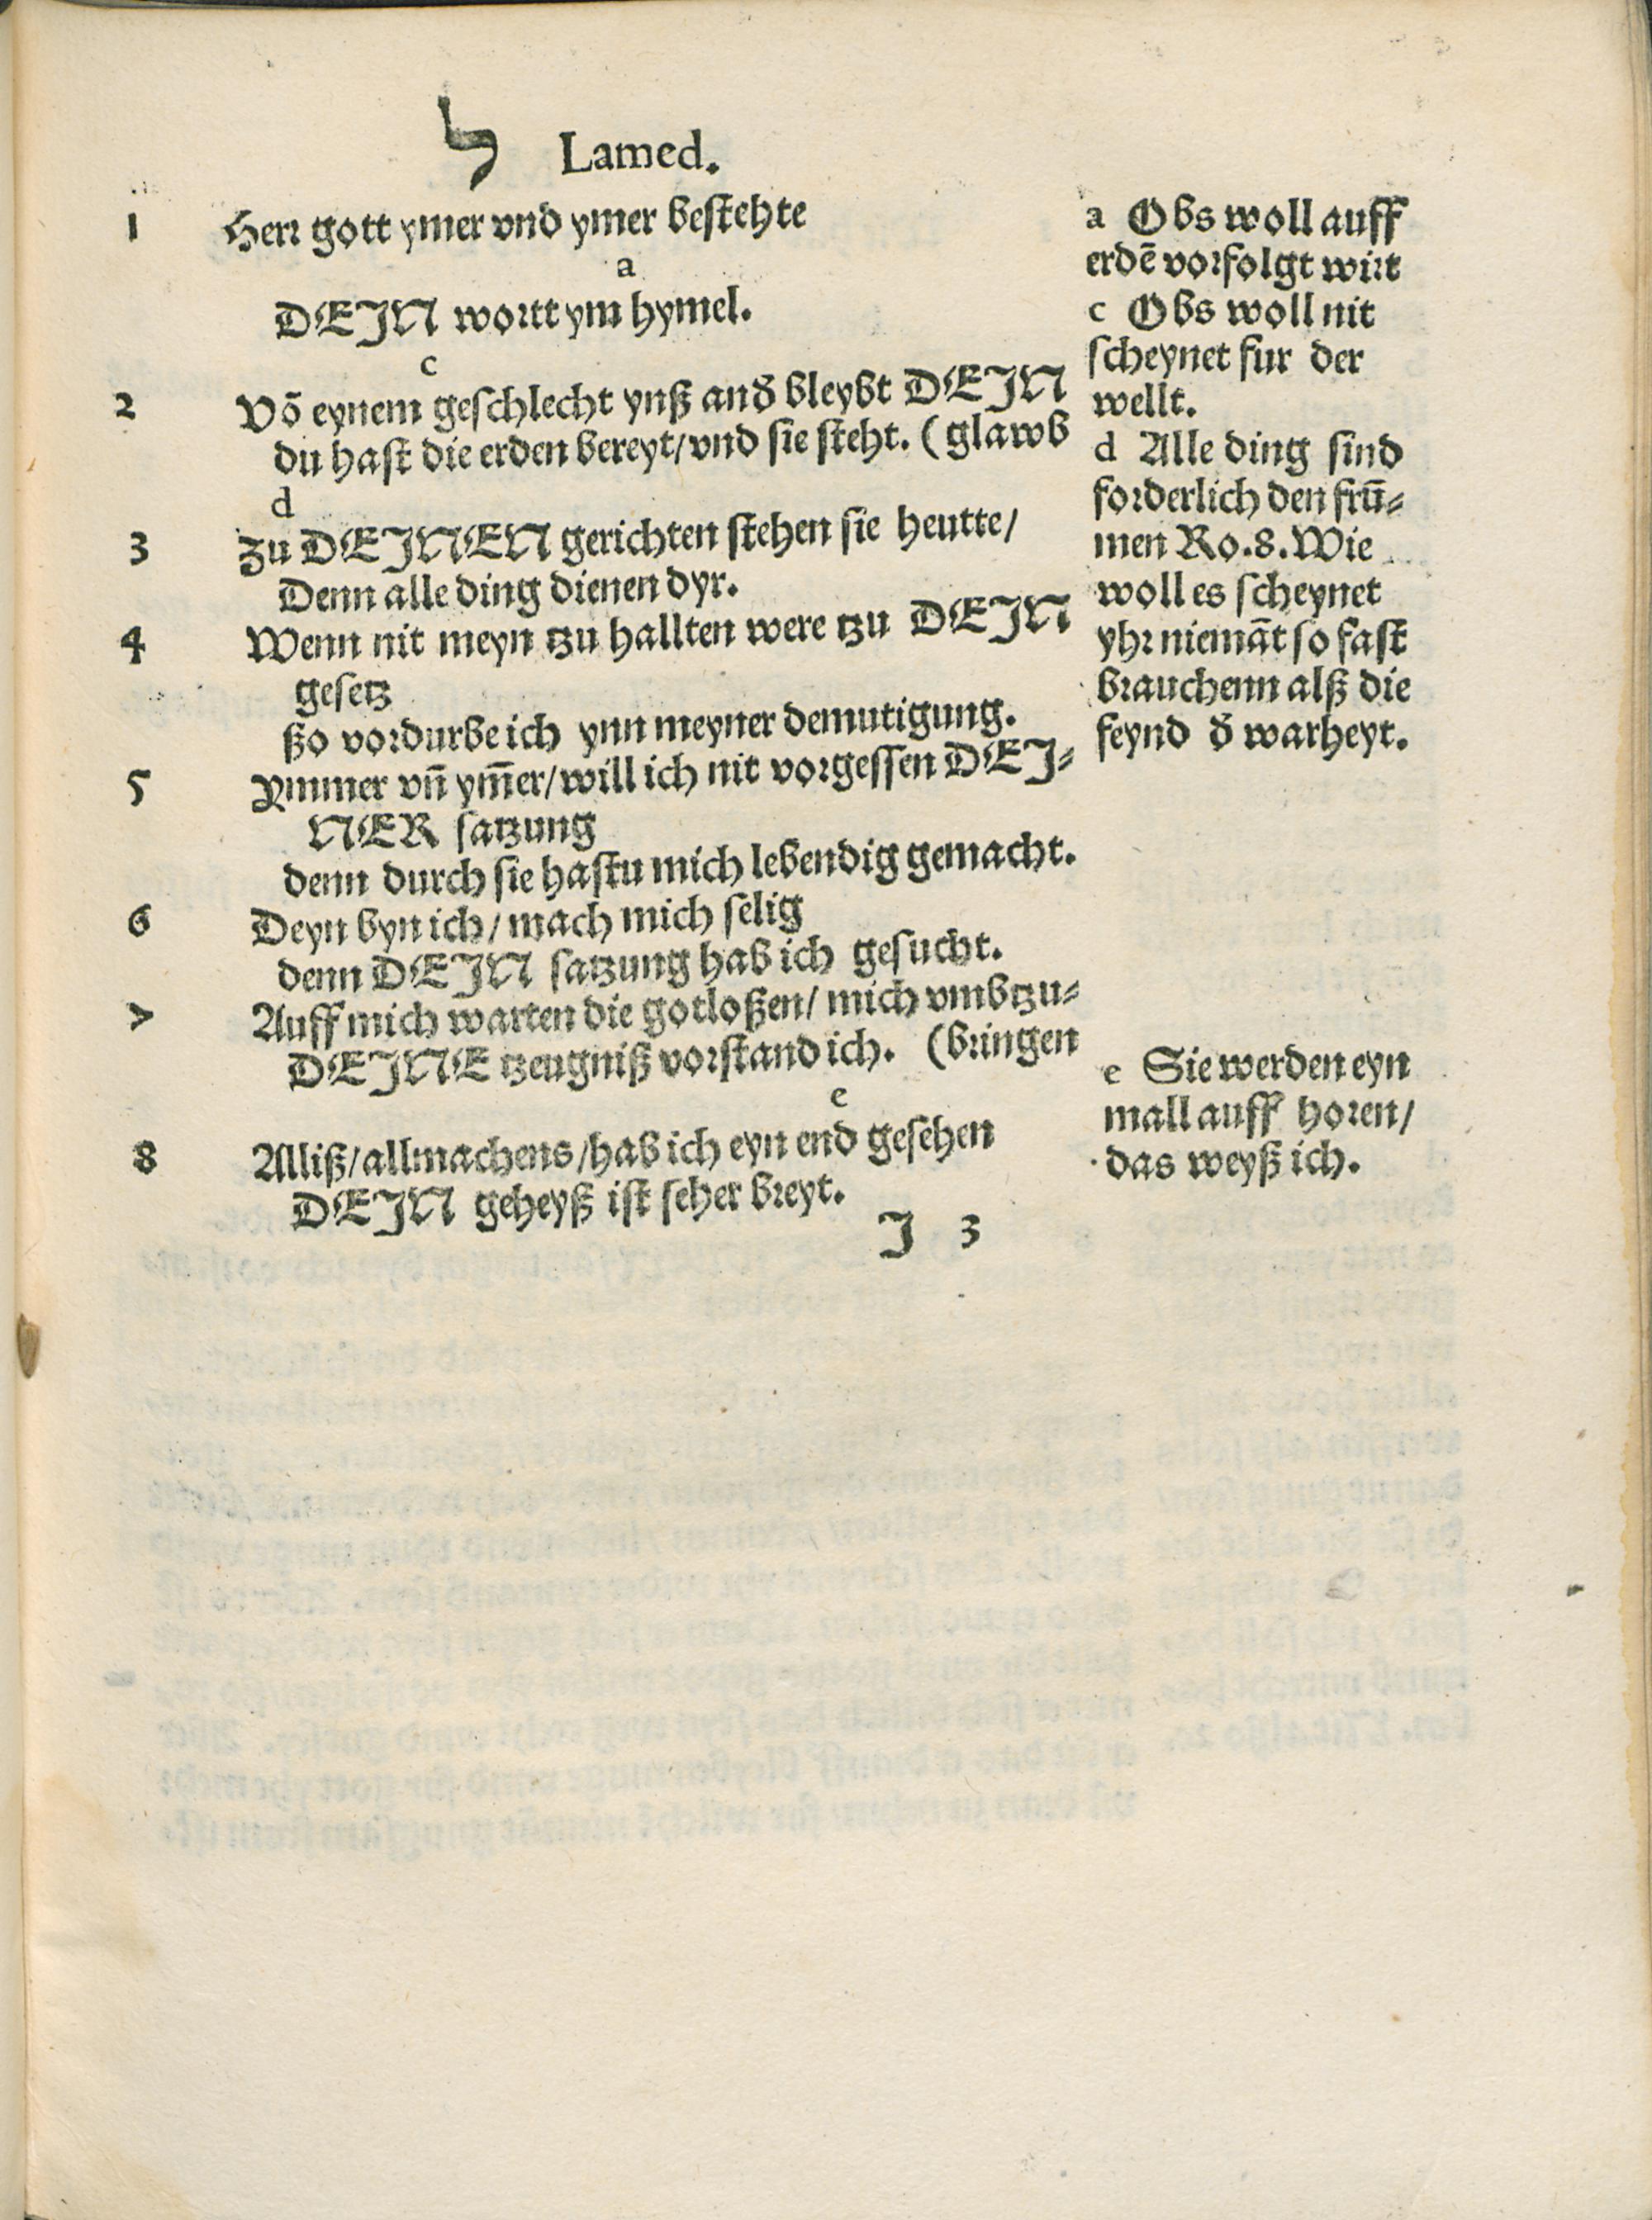 ל Lamed.
1 Herr gott ymer vnd ymer bestehte
a
DEJN wortt ym hymel.
c
2 Võ eynem geschlecht ynß and̕ bleybt DEJN
du hast die erden bereyt/vnd sie steht. (glawb
d
3 Zu DEJNEN gerichten stehen sie heutte/
Denn alle ding dienen dyr.
4 Wenn nit meyn tzu hallten were tzu DEJN
gesetz
ßo vordurbe ich ynn meyner demutigung.
5 Ymmer vñ ym̃er/will ich nit vorgessen DEJ⸗
NER satzung
denn durch sie hastu mich lebendig gemacht.
6 Deyn byn ich/ mach mich selig
denn DEJN satzung hab ich gesucht.
7 Auff mich warten die gotloßen/ mich vmbtzu⸗
DEJNE tzeugniß vorstand ich. (bringen
e
8 Alliß/allmachens/hab ich eyn end gesehen
DEJN geheyß ist seher breyt.
J 3
a Obs woll auff
erdẽ vorfolgt wirt
c Obs woll nit
scheynet fur der
wellt.
d Alle ding sind
forderlich den frũ⸗
men Ro.8.Wie
woll es scheynet
yhr niemãt so fast
brauchenn alß die
feynd d̕ warheyt.
e Sie werden eyn
mall auff horen/
das weyß ich.